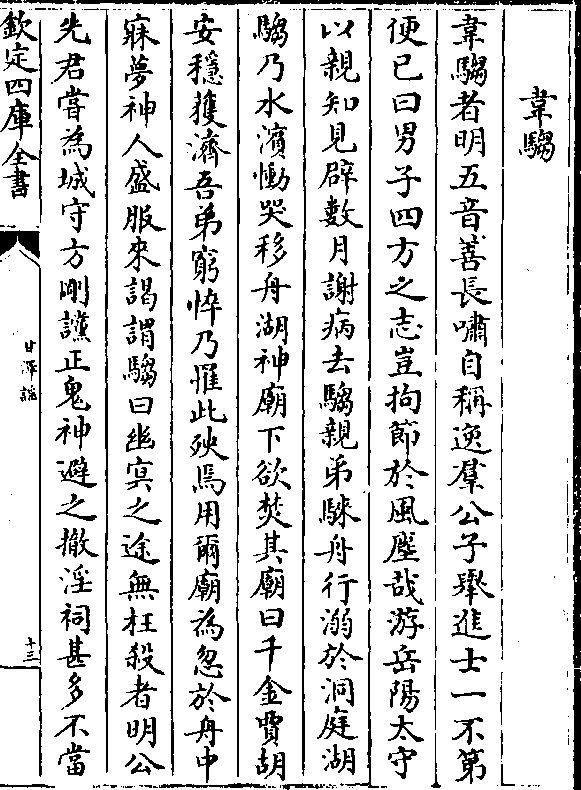 韋騶
韋騶者明五音善長嘯自稱逸羣公子舉進士一不第
便已曰男子四方之志豈拘節於風塵哉游岳陽太守
以親知見辟數月謝病去騶親弟騋舟行溺於洞庭湖
騶乃水濱慟哭移舟湖神廟下欲焚其廟曰千金賈胡
安穩獲濟吾弟窮悴乃罹此殃焉用爾廟為忽於舟中
寐夢神人盛服來謁謂騶曰幽冥之途無枉殺者明公
先君嘗為城守方剛讜正鬼神避之撤淫祠甚多不當
欽定四庫全書
甘澤謠
十三